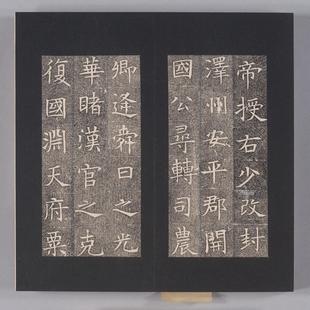 帝授右少改封
澤州安平郡開
國公尋轉司農
卿逢舜日之光
華睹漢官之克
復國淵天府粟